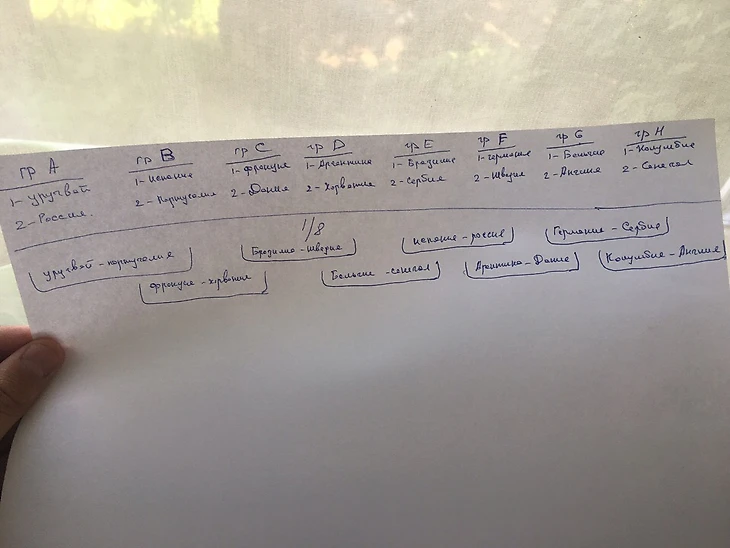 гр А гр В гр С гр D гр Е гр F гр G гр Н
1- Уругвай 1- Испания 1- Франция 1- Аргентина 1- Бразилия 1- Германия 1- Бельгия 1- Колумбия
2- Россия. 2- Португалия 2- Дания 2- Хорватия 2- Сербия 2- Швеция 2- Англия 2- Сенегал
1/8
Уругвай - португалия Бразилия - швеция испания - россия Германия - Сербия
франция - хорватия Бельгия - сенегал Аргентина - Дания Колумбия - Англия